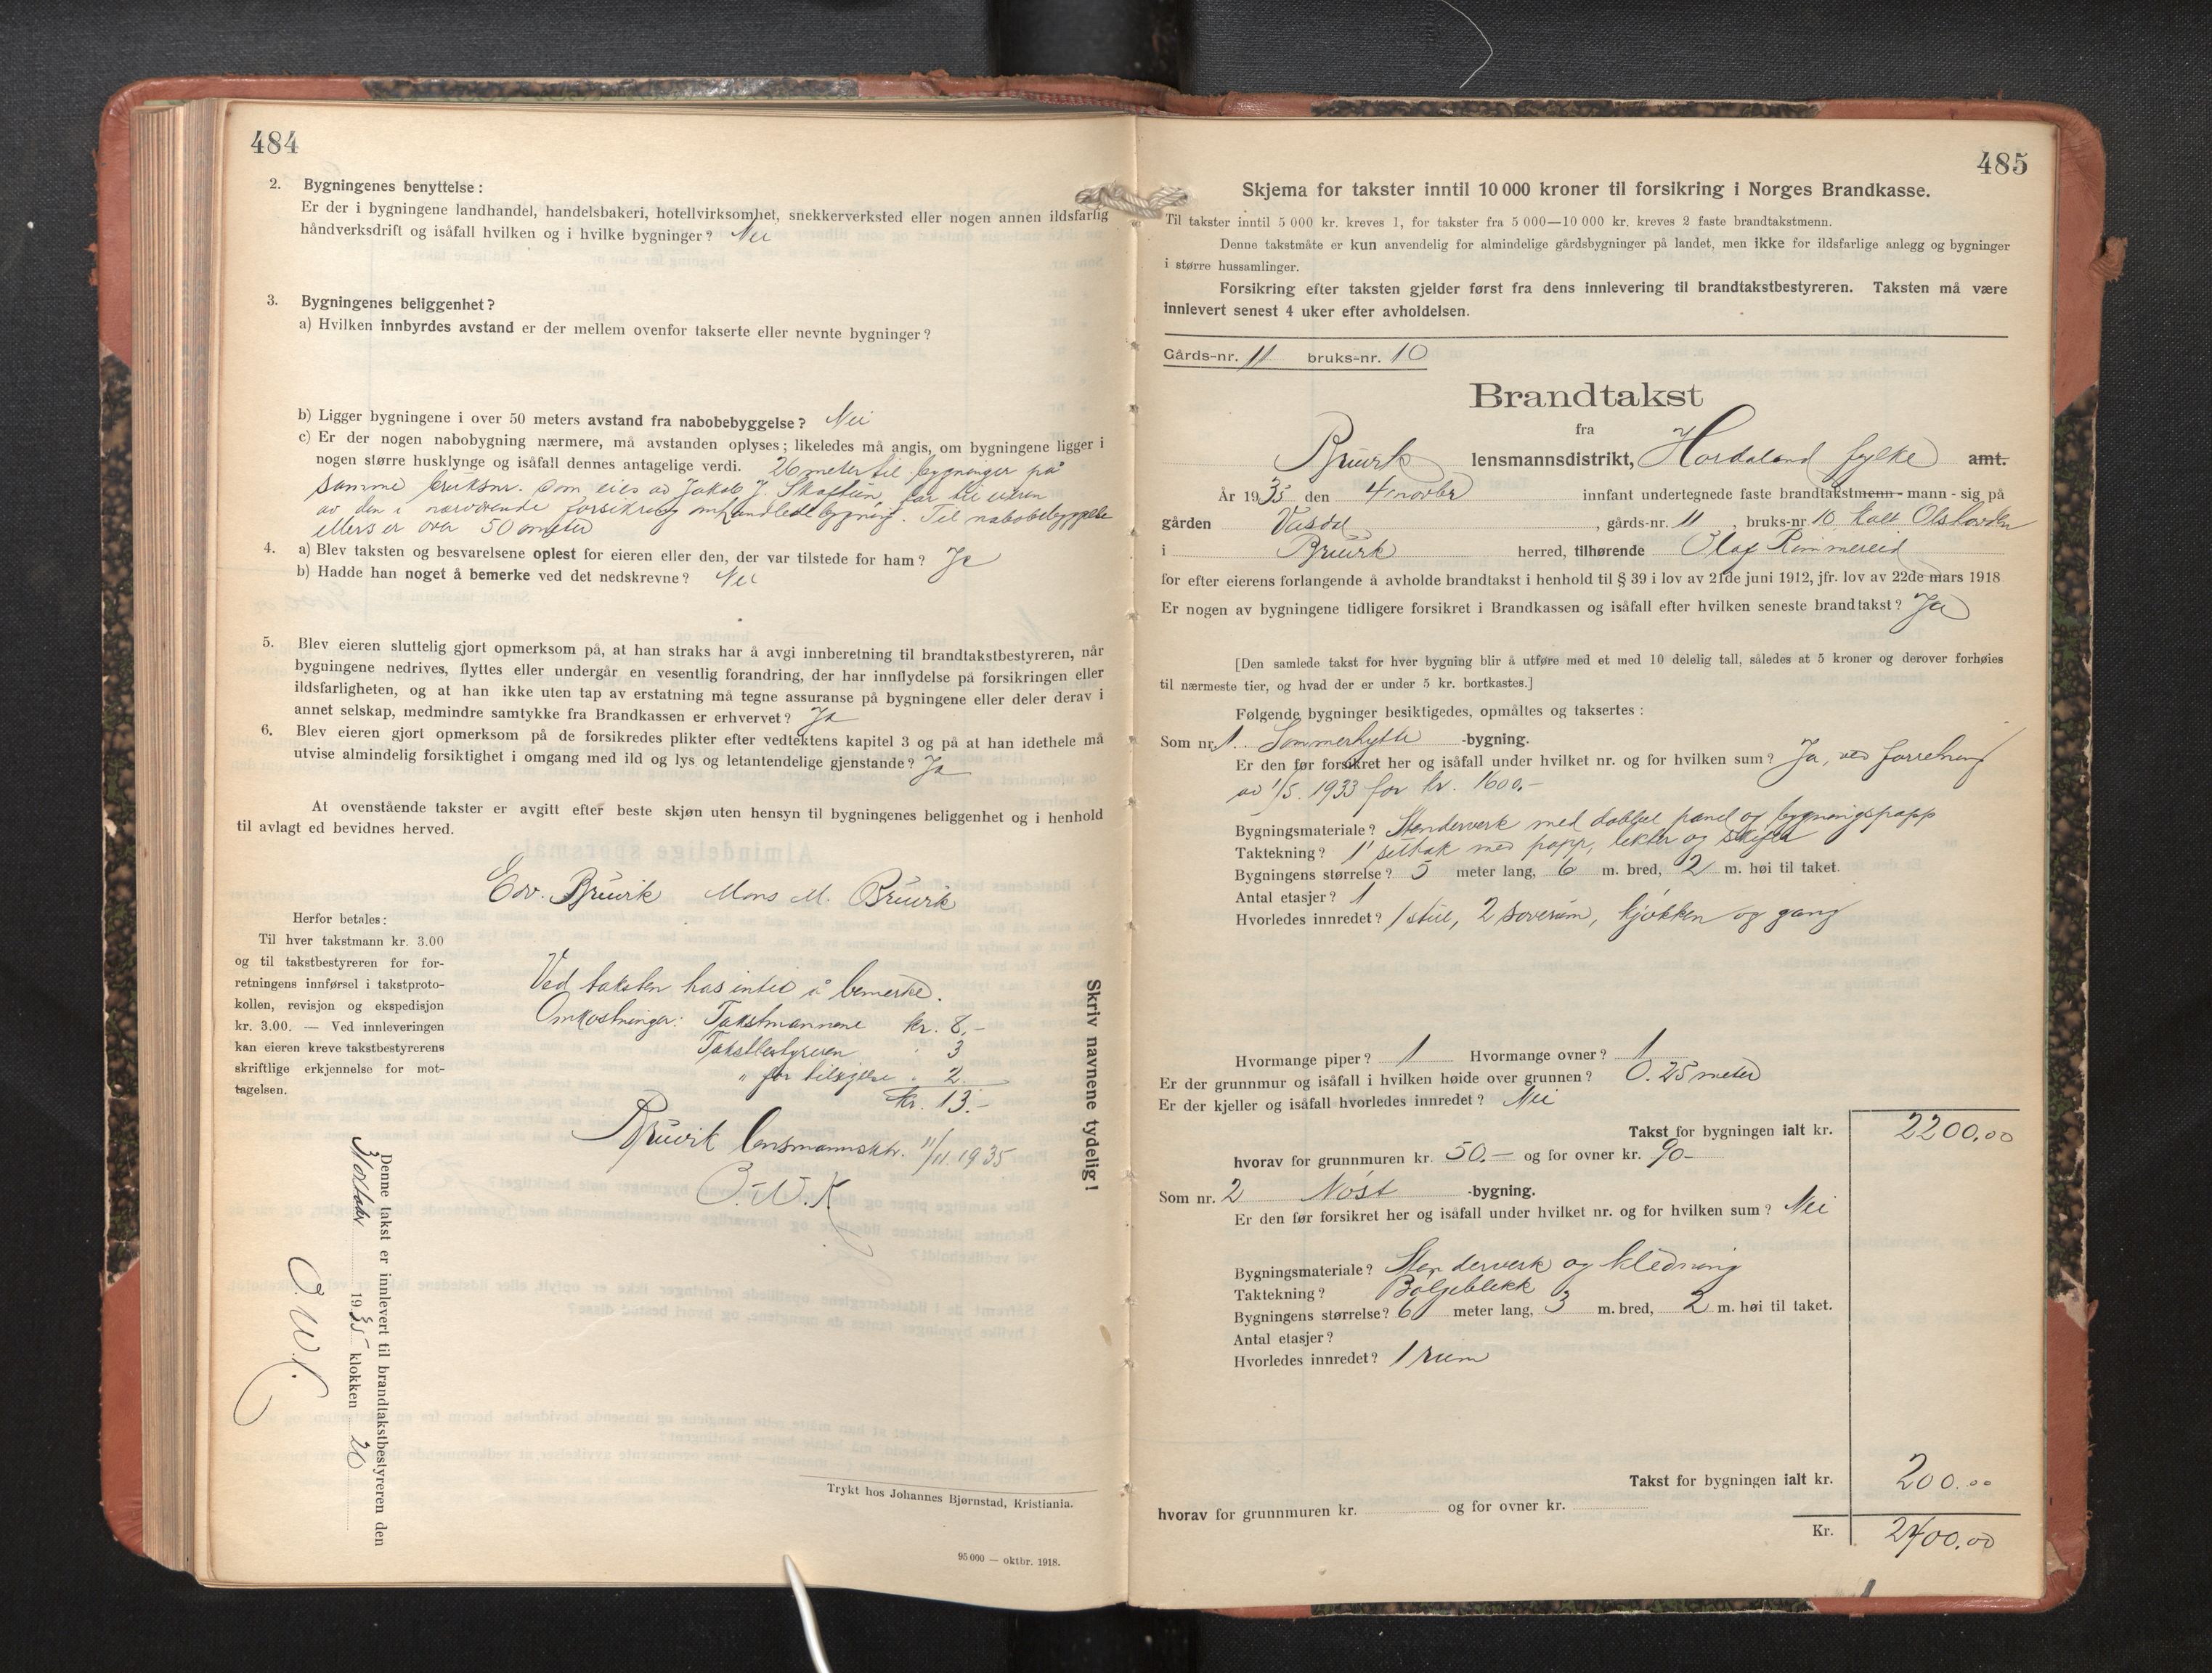 484
2. Bygningenes benyttelse:
Er der i bygningene landhandel, handelsbakeri, hotellvirksomhet, snekkerverksted eller nogen annen ildsfarlig
håndverksdrift og isåfall hvilken og i hvilke bygninger? Nei
3. Bygningenes beliggenhet?
a) Hvilken innbyrdes avstand er der mellem ovenfor takserte eller nevnte bygninger?
b) Ligger bygningene i over 50 meters avstand fra nabobebyggelse? Nei
c) Er der nogen nabobygning nærmere, må avstanden oplyses; likeledes må angis, om bygningene ligger i
nogen større husklynge og isåfall dennes antagelige verdi. 26 meter til bygninger på
samme bruksnr. som eies av Jakob J. Skaftun, far til eieren
av den i nærværende forsikring omhandlede bygning. Til nabobebyggelse
ellers er over 50 meter
4. a) Blev taksten og besvarelsene oplest for eieren eller den, der var tilstede for ham? Ja
b) Hadde han noget å bemerke ved det nedskrevne? Nei
5. Blev eieren sluttelig gjort opmerksom på, at han straks har å avgi innberetning til brandtakstbestyreren, når
bygningene nedrives, flyttes eller undergår en vesentlig forandring, der har innflydelse på forsikringen eller
ildsfarligheten, og at han ikke uten tap av erstatning må tegne assuranse på bygningene eller deler derav i
annet selskap, medmindre samtykke fra Brandkassen er erhvervet? Ja
6. Blev eieren gjort opmerksom på de forsikredes plikter efter vedtektens kapitel 3 og på at han idethele må
utvise almindelig forsiktighet i omgang med ild og lys og letantendelige gjenstande? Ja
At ovenstående takster er avgitt efter beste skjøn uten hensyn til bygningenes beliggenhet og i henhold
til avlagt ed bevidnes herved.
Edv. Bruvik Mons M. Bruvik
Herfor betales:
Til hver takstmann kr. 3.00
og til takstbestyreren for for-
retningens innførsel i takstproto-
kollen, revisjon og ekspedisjon
kr. 3.00. — Ved innleveringen
kan eieren kreve takstbestyrerens
skriftlige erkjennelse for mot-
tagelsen.
Ved taksten has intet å bemerke.
Omkostninger: Takstmannene kr. 8.-
Takstbestyreren " 3
" for tilsigelse " 2
kr. 13.-
Bruvik lensmannsktr. 11/11 1935
Skriv navnene tydelig!
Denne takst er innlevert til brandtakstbestyreren den
1935 klokken 20
Trykt hos Johannes Bjørnstad, Kristiania.
95 000 — oktbr. 1918.
485
Skjema for takster inntil 10 000 kroner til forsikring i Norges Brandkasse.
Til takster inntil 5 000 kr. kreves 1, for takster fra 5 000—10 000 kr. kreves 2 faste brandtakstmenn.
Denne takstmåte er kun anvendelig for almindelige gårdsbygninger på landet, men ikke for ildsfarlige anlegg og bygninger
i større hussamlinger.
Forsikring efter taksten gjelder først fra dens innlevering til brandtakstbestyreren. Taksten må være
innlevert senest 4 uker efter avholdelsen.
Gårds-nr. 11 bruks-nr. 10
Brandtakst
fra
Bruvik lensmannsdistrikt, Hordaland fylke amt.
År 1935 den 4 novbr innfant undertegnede faste brandtakstmenn - mann - sig på
gården , gårds-nr. 11 , bruks-nr 10 kalt
i Bruvik herred, tilhørende Olaf Rimmereid
for efter eierens forlangende å avholde brandtakst i henhold til § 39 i lov av 21de juni 1912, jfr. lov av 22de mars 1918
Er nogen av bygningene tidligere forsikret i Brandkassen og isåfall efter hvilken seneste brandtakst? Ja
[Den samlede takst for hver bygning blir å utføre med et med 10 delelig tall, således at 5 kroner og derover forhøies
til nærmeste tier, og hvad der er under 5 kr. bortkastes.]
Følgende bygninger besiktigedes, opmåltes og taksertes:
Som nr. 1 Sommerhytte -bygning.
Er den før forsikret her og isåfall under hvilket nr. og for hvilken sum? Ja, ved forretning
av 1/5. 1933 for kr. 1600,-
Bygningsmateriale? Stenderverk med dobbel panel og bygningspapp
Taktekning? 1" sutak med papp, lekter og skifer
Bygningens størrelse? 5 meter lang, 6 m. bred, 2 m. høi til taket.
Antal etasjer? 1
Hvorledes innredet? 1 stue, 2 soverum, kjøkken og gang
Hvormange piper? 1 Hvormange ovner? 1
Er der grunnmur og isåfall i hvilken høide over grunnen? 0.25 meter
Er der kjeller og isåfall hvorledes innredet? Nei
Takst for bygningen ialt kr. 2200.00
hvorav for grunnmuren kr. 50.- og for ovner kr. 90-
Som nr. 2 Nøst -bygning.
Er den før forsikret her og isåfall under hvilket nr. og for hvilken sum? Nei
Bygningsmateriale? Stenderverk og kledning
Taktekning? Bølgeblekk
Bygningens størrelse? 6 meter lang, 3 m. bred, 2 m. høi til taket.
Antal etasjer?
Hvorledes innredet? 1 rum
Takst for bygningen ialt kr. 200.00
hvorav for grunnmuren kr. og for ovner kr.
Kr. 2400.00